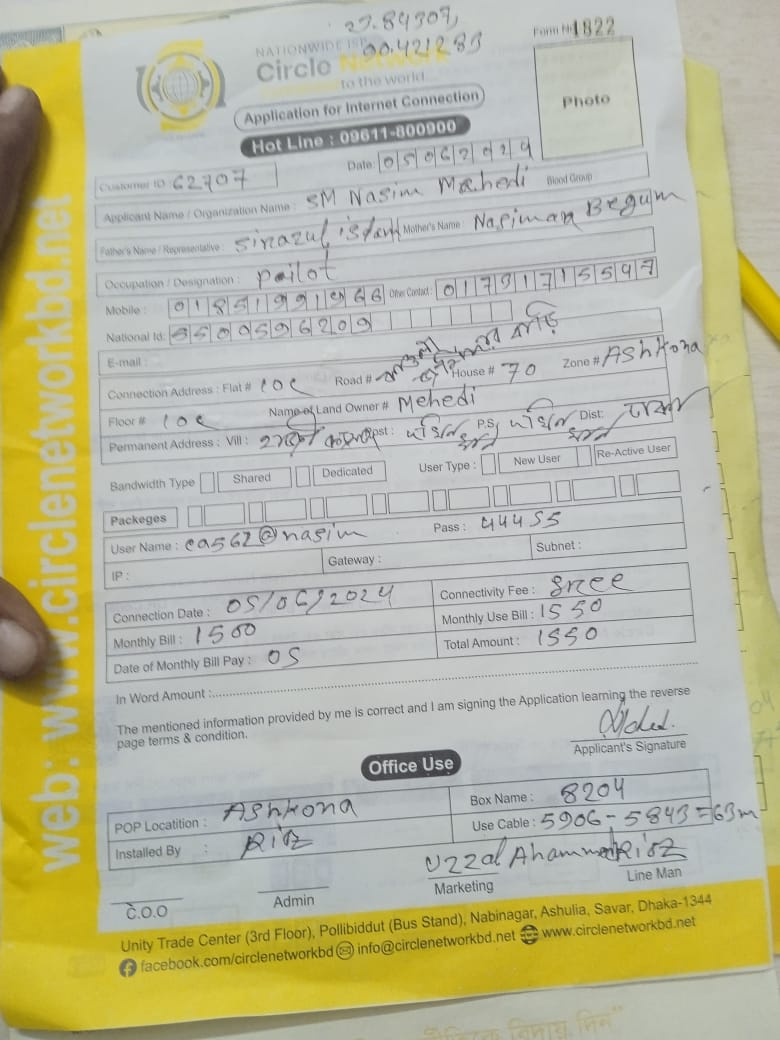 23.84307,
90.421283
Form No 1822
NATIONWIDE ISP
Circle Network
to the world
Photo
Application for Internet Connection
Hot Line : 09611-800900
Date: 05062024
Customer ID: 62707
Applicant Name / Organization Name : SM Nasim Mahedi Blood Group
Father's Name / Representative: Sirazul islam Mother's Name : Nasiman Begum
Occupation / Designation : pailot
Mobile : 01851991966 Other Contact : 01731715547
National Id: 5509596209
E-mail :
Connection Address : Flat # 10C Road # House # 70 Zone # Ashkona
Floor # 10C Name of Land Owner # Mehedi
Permanent Address : Vill : Post: P.S: Dist:
Bandwidth Type Shared Dedicated User Type : New User Re-Active User
Packeges
User Name : ca562@nasim Pass : 44455
IP : Gateway : Subnet :
Connection Date : 05/06/2024 Connectivity Fee : free
Monthly Bill : 1500 Monthly Use Bill : 1550
Date of Monthly Bill Pay : 05 Total Amount : 1550
In Word Amount :
The mentioned information provided by me is correct and I am signing the Application learning the reverse
page terms & condition.
Applicant's Signature
Office Use
POP Locatition : Ashkona Box Name : 8204
Installed By : Use Cable : 5906 - 5843 = 63m
Uzzal Ahammed
C.O.O Admin Marketing Line Man
Unity Trade Center (3rd Floor), Pollibiddut (Bus Stand), Nabinagar, Ashulia, Savar, Dhaka-1344
facebook.com/circlenetworkbd info@circlenetworkbd.net www.circlenetworkbd.net
web: www.circlenetworkbd.net